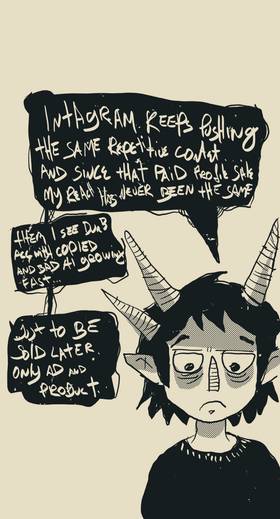 INTAGRAM KEEPS PUSHING
THE SAME REPETITIVE CONTNT
AND SINCE THAT PAID PEOPLE SHIT
MY REACH HAS NEVER BEEN THE SAME
THEN I SEE DUMB
ACC WITH COPIED
AND BAD AI GROWING
FAST..
JUST TO BE
SOLD LATER.
ONLY AD AND
PRODUCT.